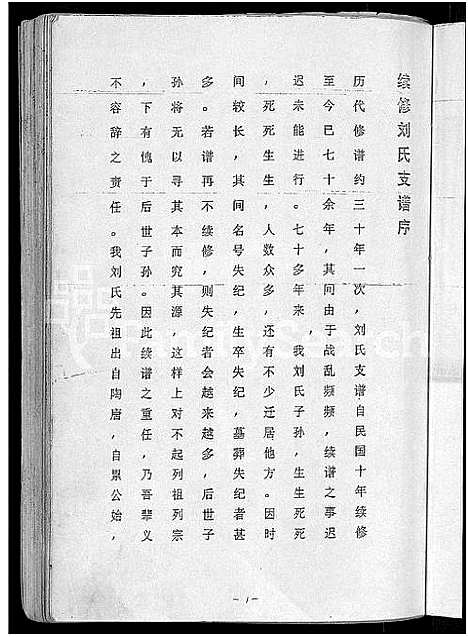 续修刘氏支谱序
历代修谱约三十年一次,刘氏支谱自民国十年续修
至今已七十余年,其间由于战乱频频,续谱之事迟
迟未能进行。七十多年来,我刘氏子孙,生生死死
,死死生生,人数众多,还有不少迁居他方。因时
间较长,其间名号失纪,生卒失纪,墓葬失纪者甚
多。若谱再不续修,则失纪者会越来越多,后世子
孙将无以寻其本而究其源,这样上对不起列祖列宗
,下有愧于后世子孙。因此续谱之重任,乃吾辈义
不容辞之责任。我刘氏先祖出自陶唐,自累公始,
-1-